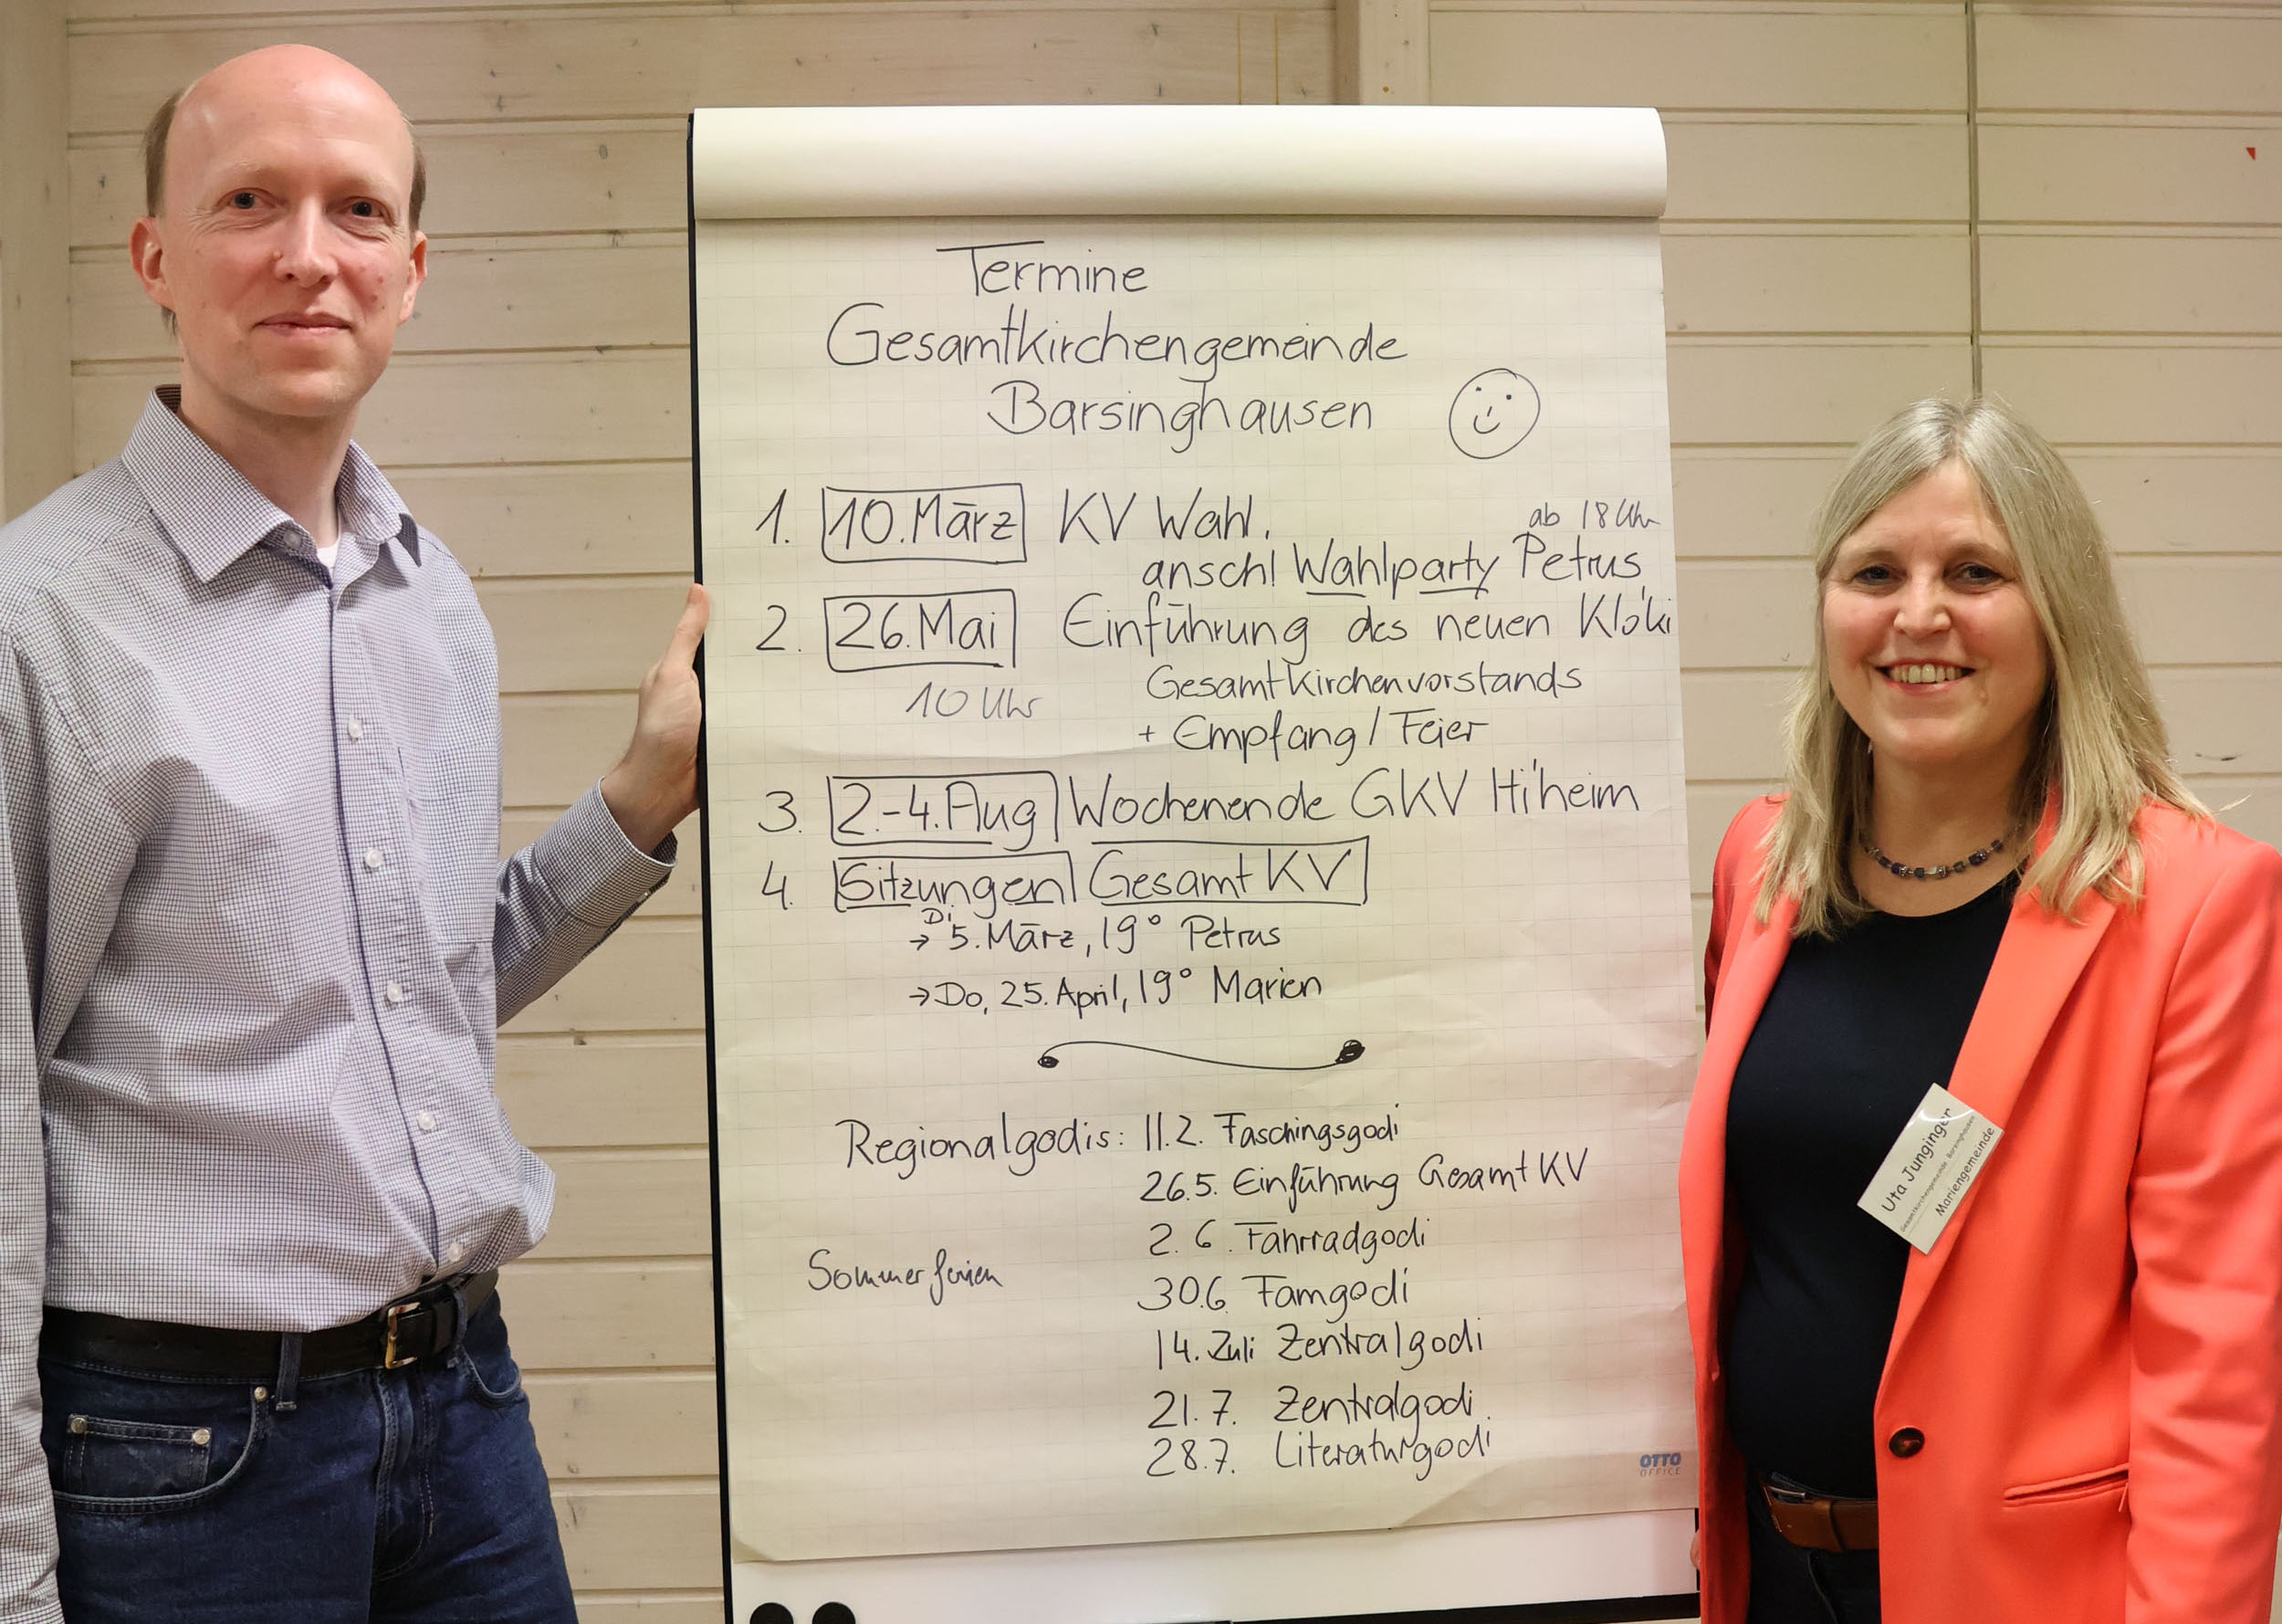 Termine
Gesamtkirchengemeinde
Barsinghausen
1. 10. März KV Wahl, ab 18 Uhr
anschl Wahlparty Petrus
2. 26. Mai Einführung des neuen Klöki
10 Uhr Gesamtkirchenvorstands
+ Empfang / Feier
3. 2.-4. Aug Wochenende GKV Hi'heim
4. Sitzungen Gesamt KV
→ Di 5. März, 19° Petrus
→ Do, 25. April, 19° Marien
Regionalgodis: 11.2. Faschingsgodi
26.5. Einführung Gesamt KV
2.6. Fahrradgodi
Sommerferien
30.6. Famgodi
14. Juli Zentralgodi
21.7. Zentralgodi
28.7. Literaturgodi
OTTO
OFFICE
Uta Junginger
Gesamtkirchengemeinde Barsinghausen
Mariengemeinde